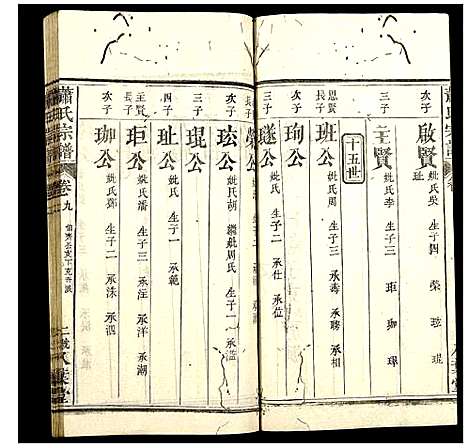 次子
啟賢
妣氏吳 生子四 榮 玹 琨
玼
三子
主賢
妣氏李 生子三 珇 珈 琾
十五世
思賢
長子
班公
妣氏周 生子三 承壽 承聘 承相
次子
珣公
三子
璲公
妣氏 生子二 承仕 承位
公
次子
玹公
妣氏胡 繼妣周氏 生子一 承濫
三子
琨公
四子
玼公
妣氏 生子一 承範
主賢
長子
珇公
妣氏潘 生子三 承洼 承洋 承潮
次子
珈公
妣氏鄭 生子二 承洙 承泗
蕭氏宗譜
卷九
八葉堂